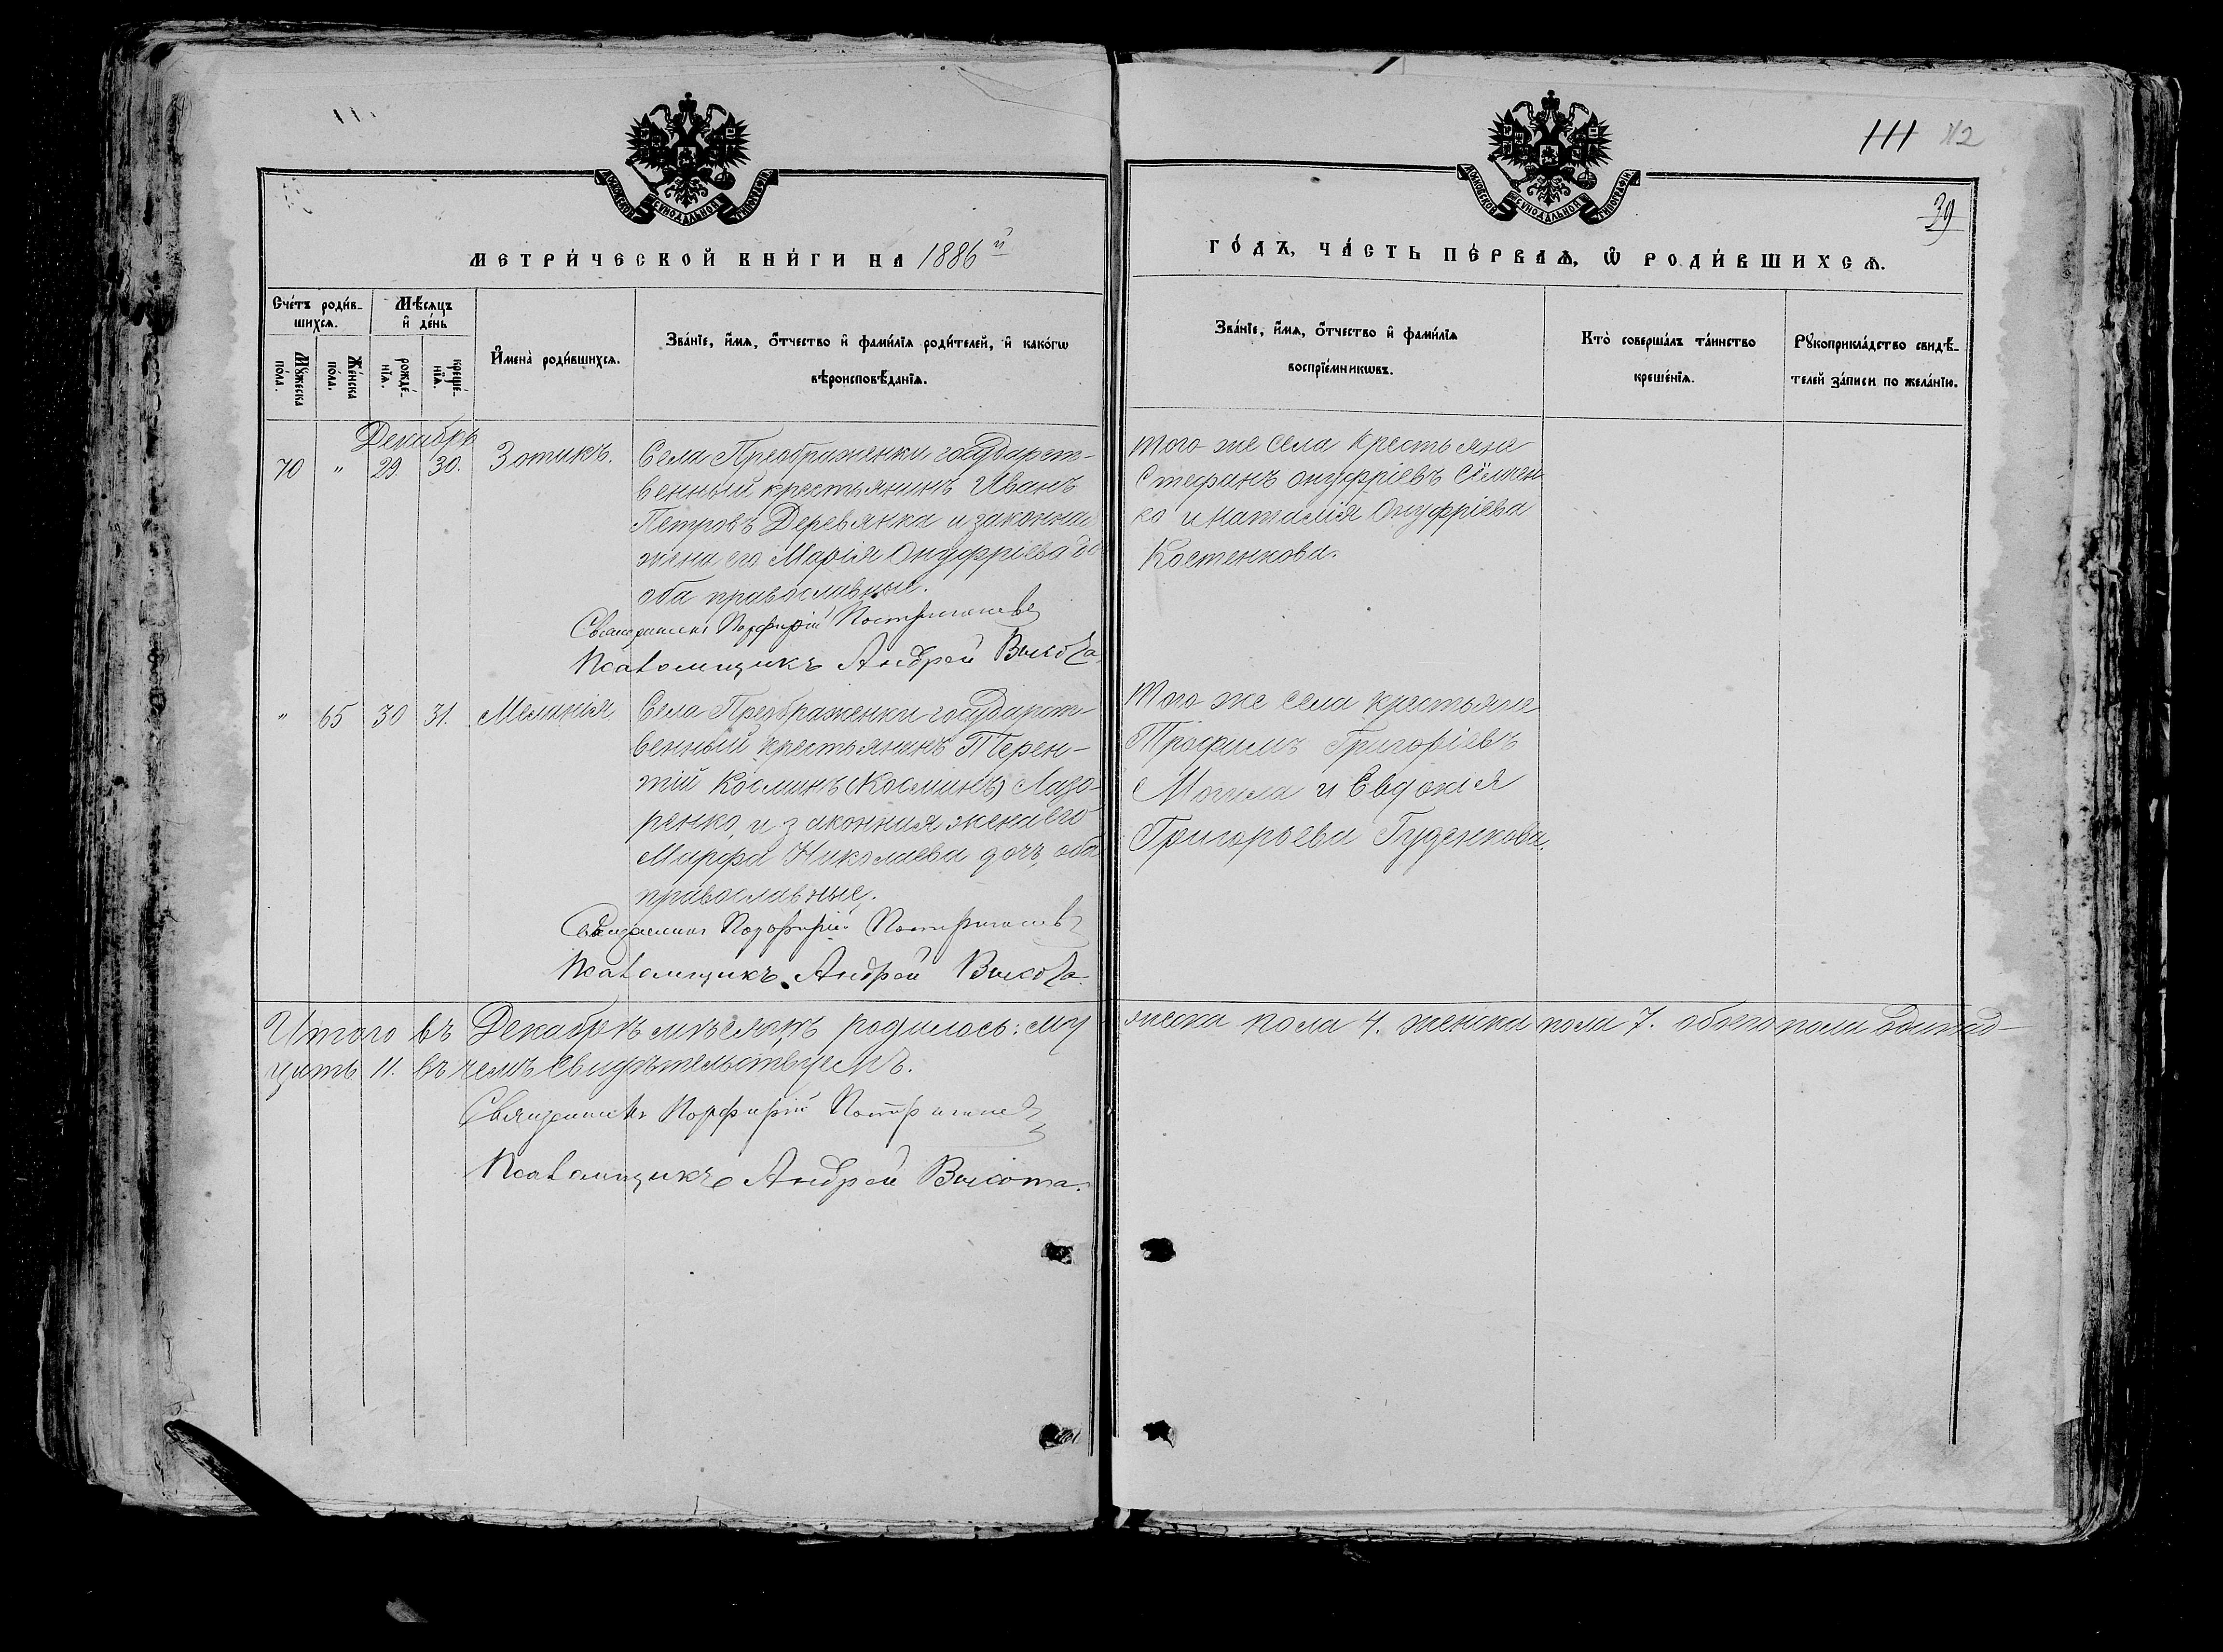 111 112
39
МОСКОВСКОЙ СѴНОДАЛЬНОЙ ТИПОГРАФІИ
МОСКОВСКОЙ СѴНОДАЛЬНОЙ ТИПОГРАФІИ
МЕТРИ́ЧЕСКОЙ КНИ́ГИ НА 1886й
ГО́ДЪ, ЧА́СТЬ ПЕ́РВАѦ, Ѿ РОДИ́ВШИХСѦ.
Сче́тъ роди́в-
шихсѧ.
Мꙋ́жеска
по́ла.
Же́нска
по́ла.
Мѣ́сѧцъ
и҆ де́нь
рожде́-
нїѧ.
креще́-
нїѧ.
И҆мена̀ роди́вшихсѧ.
Зва́нїе, и҆́мѧ, ѻ҆́тчество и҆ фами́лїѧ роди́телей, и҆ како́гѡ
вѣроисповѣ́данїѧ.
Зва́нїе, и҆́мѧ, ѻ҆́тчество и҆ фами́лїѧ
воспрїе́мникѡвъ.
Кто̀ соверша́лъ та́инство
креще́нїѧ.
Рꙋкоприкла́дство свидѣ́-
телей за́писи по жела́нїю.
Декабрь
70 " 29. 30. Зотикъ.
Села Преображенки государст-
венный крестьянинъ Иванъ
Петровъ Деревянка и законная
жена его Марія Онуфріева
оба православные.
Священникъ Порфирій
Псаломщикъ Андрей Высота.
того же села крестьяне
Стефанъ Онуфріевъ Сёмен
ко и Наталія Онуфріева
Костенкова.
" 65 30 31. Меланія.
Села Преображенки государст-
венный крестьянинъ Терен-
тій Косминъ (Косминъ) Лазо-
ренко, и законная жена его
Марфа Николаева дочь, оба
православные.
Священникъ Порфирій
Псаломщикъ Андрей Высота.
Того же села крестьяне
Трофимъ Григоріевъ
Могила и Евдокія
Григорьева Гуденкова.
Итого въ Декабрѣ мѣсяцѣ родилось: му жеска пола 4. женска пола 7. обоего пола Одинад-
цать 11. въ чемъ свидѣтельствуемъ.
Священникъ Порфирій
Псаломщикъ Андрей Высота.